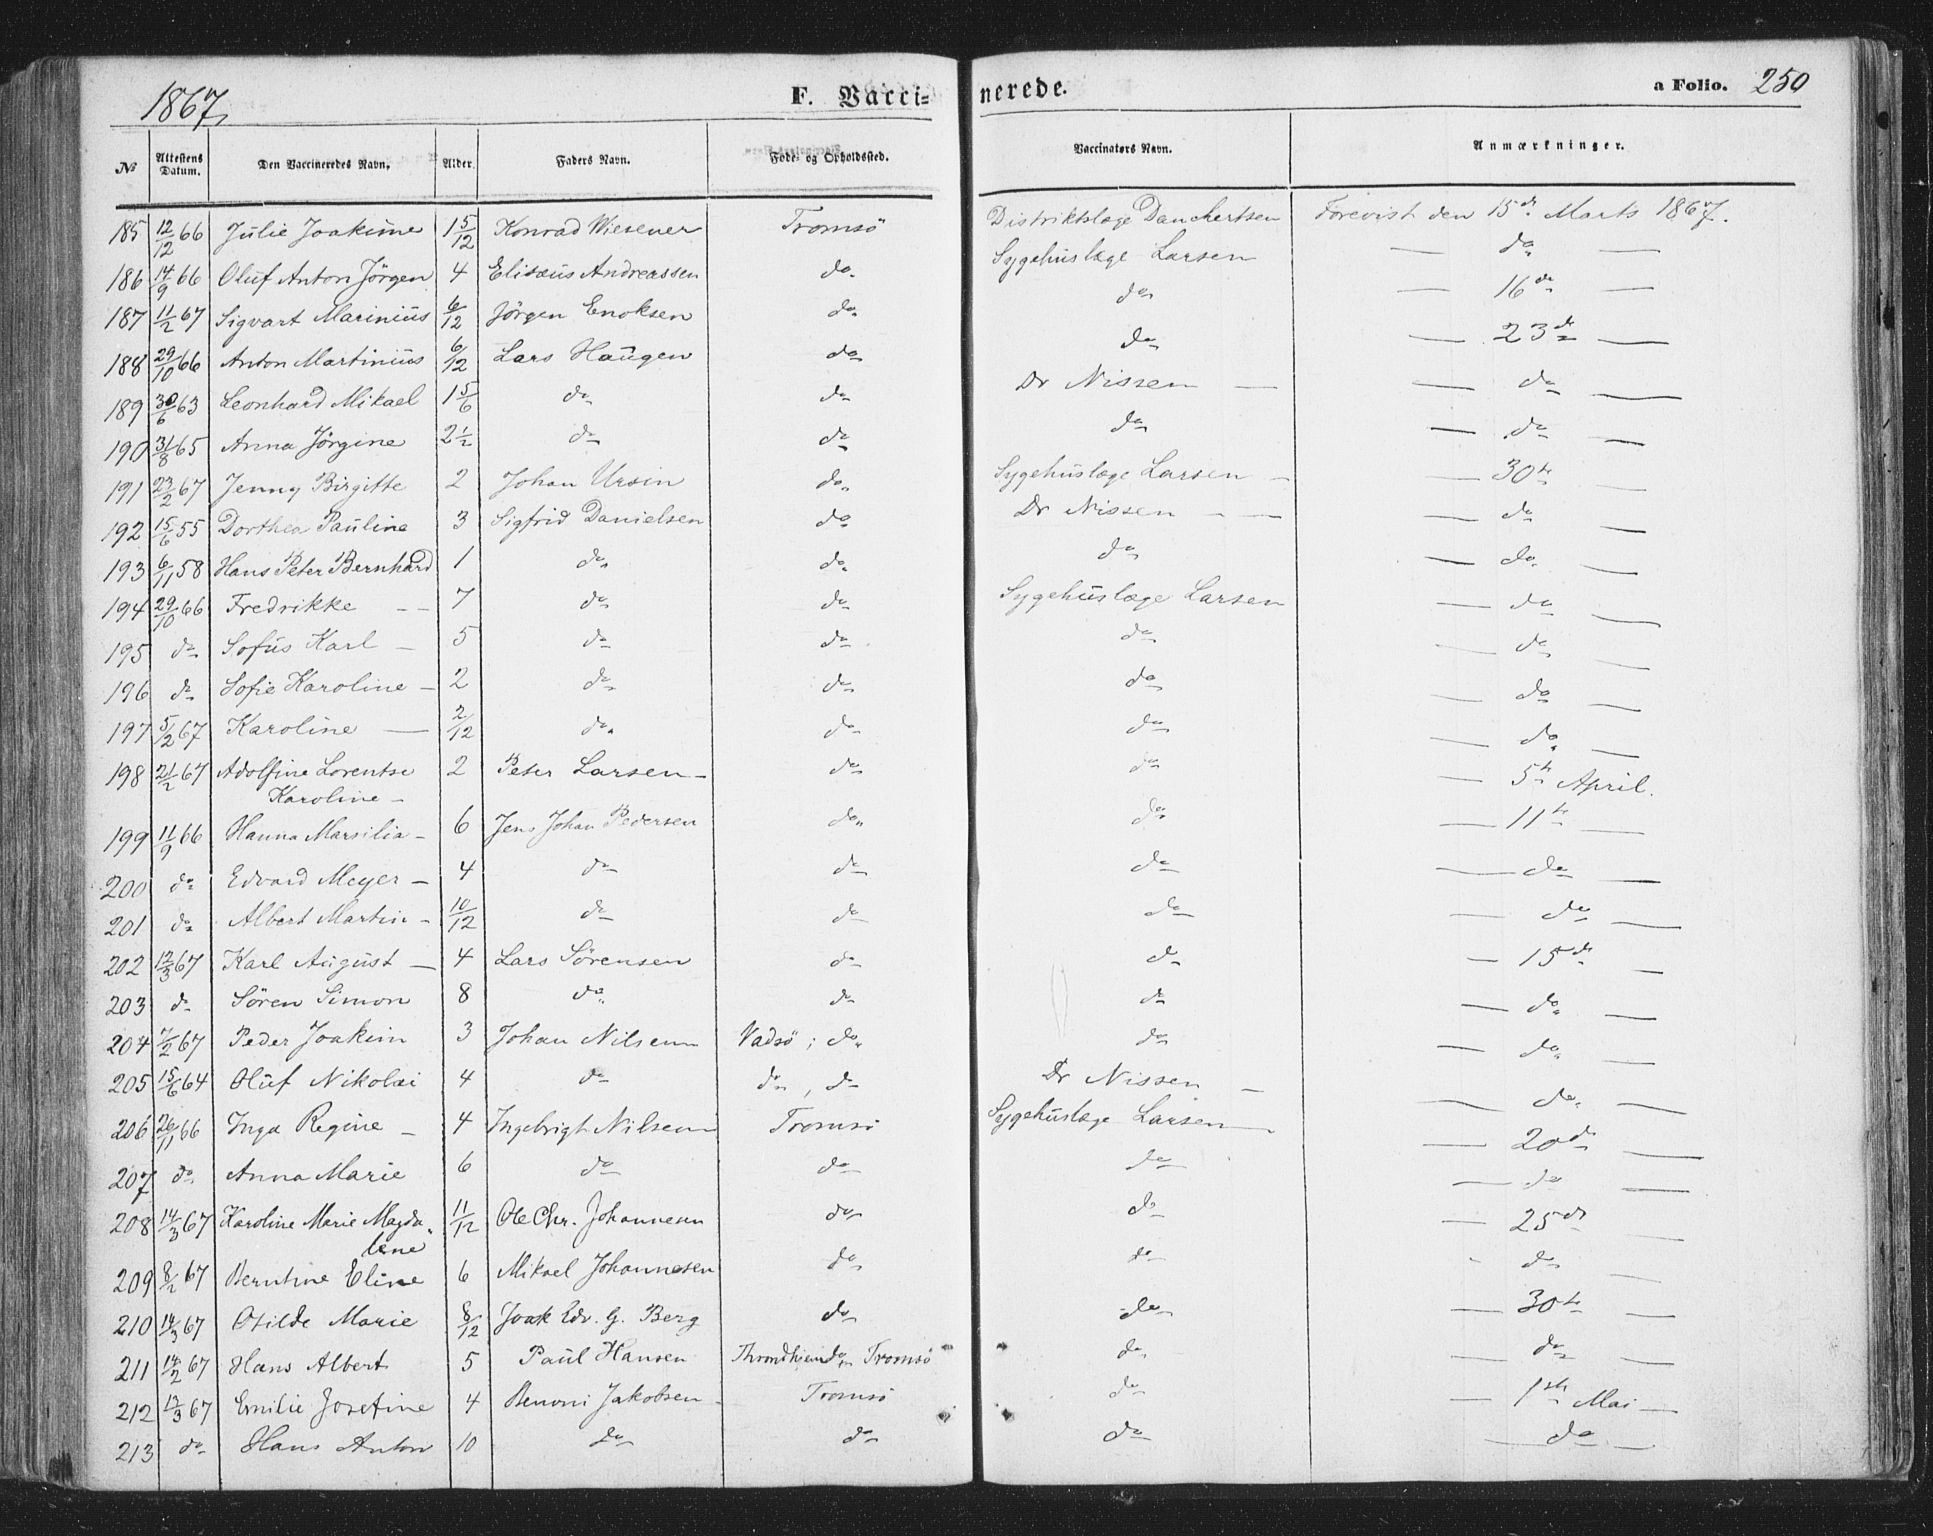 1867, F. Vacci- nerede. a Folio. 250
№ Attestens Datum. Den Vaccineredes Navn. Alder. Faders Navn. Føde- og Opholdssted. Vaccinatørs Navn. Anmærkninger.
185 12/12 66 Julie Joakime 1 5/12 Konrad Wiesener Tromsö Distriktslæge Danchertsen Forevist den 15de Marts 1867.
186 14/9 66 Oluf Anton Jörgen 4 Elisæus Andreassen do Sygehuslæge Larsen — do —
187 11/2 67 Sigvart Marinius 6/12 Jörgen Enoksen do do — 16de —
188 29/10 66 Anton Martinius 6/12 Lars Haugen do do — 23de —
189 30/6 63 Leonhard Mikael 1 5/6 do do Dr Nissen — — do —
190 31/8 65 Anna Jörgine 2 1/2 do do do — do —
191 23/2 67 Jenny Birgitte 2 Johan Ursin do Sygehuslæge Larsen — — 30te —
192 15/6 55 Dorthea Pauline 3 Sigfrid Danielsen do Dr Nissen — — — do —
193 6/11 58 Hans Peter Bernhard 1 do do do — do —
194 29/10 66 Fredrikke — — 7 do do Sygehuslæge Larsen — do —
195 do Sofus Karl — 5 do do do — do —
196 do Sofie Karoline — 2 do do do — do —
197 5/2 67 Karoline — 2/12 do do do — do —
198 21/2 67 Adolfine Lorentse 2 Peter Larsen — do do — 5te April.
Karoline —
199 11/9 66 Hanna Marsilia — 6 Jens Johan Pedersen do do — 11te —
200 do Edvard Meyer — 4 do do do — do —
201 do Albert Martin — 10/12 do do do — do —
202 12/3 67 Karl August — 4 Lars Sörensen do do — 15de —
203 do Sören Simon 8 do do do — do —
204 7/2 67 Peder Joakim 3 Johan Nilsen Vadsö ; do do — do —
205 15/6 64 Oluf Nikolai 4 do do , do Dr Nissen — — do —
206 26/11 66 Inga Regine — 4 Ingebrigt Nilsen Tromsö Sygehuslæge Larsen — — 20de —
207 do Anna Marie 6 do do do — do —
208 14/3 67 Karoline Marie Magda- 11/12 Ole Chr. Johannesen do do — 25de —
lene
209 8/2 67 Berntine Eline 6 Mikael Johannesen do do - do —
210 14/3 67 Otilde Marie 8/12 Joak Edv. G. Berg do do — 30te —
211 14/2 67 Hans Albert 5 Paul Hansen Throndhjem do, Tromsö do — do —
212 13/3 67 Emilie Josefine 4 Benoni Jakobsen — Tromsö do — 1ste Mai —
213 do Hans Anton 10 do do do — do —